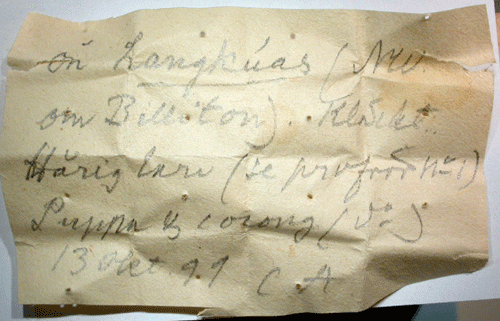 ön Langkúas (NW.
om Billiton). Kläckt.
Hårig larv (se prof rör No 1)
Puppa i cocong (do)
13 Okt. 99 C A